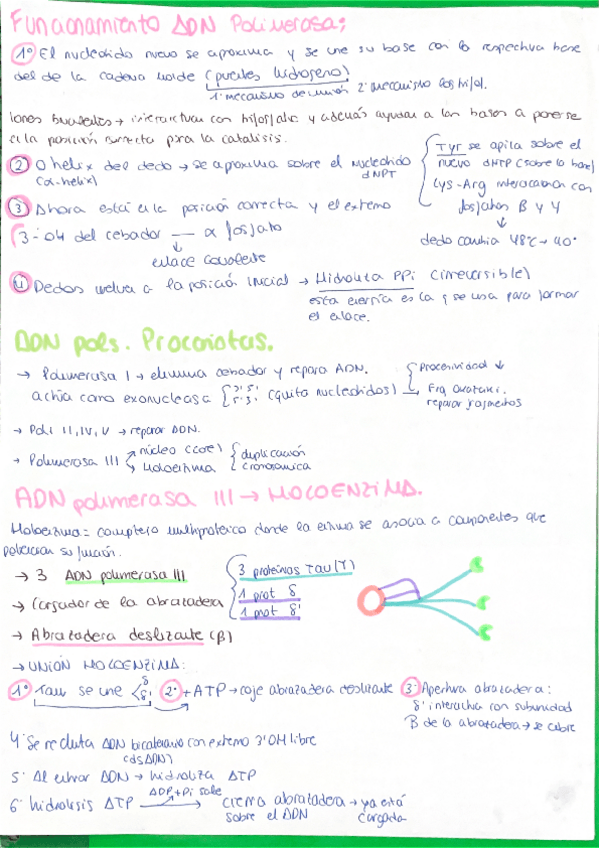 Funcionamiento ADN Polimerasa:
1º El nucleotido nuevo se aproxima y se une su base con la respectiva base
del de la cadena molde (puentes hidrogeno)
1º mecanismo de unión 2º mecanismo los fosfol.
Iones bivalentes → interactuan con fosfatic y además ayudan a las bases a ponerse
en la posición correcta para la catálisis.
2 O helix del dedo → se aproxima sobre el nucleotido
(α-helix) dNPT
Tyr se apila sobre el
nuevo dNTP (sobre la base)
Lys-Arg interaccionan con
fosfatos β y γ
↓
dedo cambia 48ºC → 40º
3 Ahora está en la posición correcta y el extremo
3-OH del cebador — α fosfato
enlace covalente
4 Dedos vuelve a la posición inicial → Hidroliza PPi (irreversible)
esta energía es la q se usa para formar
el enlace.
ADN pols. Procariotas.
→ Polimerasa I → elimina cebador y repara ADN.
actúa como exonucleasa { 3'-5' 5'-3' (quita nucleotidos) → { Procesividad ↓
Frag okazaki.
reparar fragmentos
→ Pol II, IV, V → reparar ADN.
→ Polimerasa III < núcleo (core)
Holoenzima { duplicación
cromosomica
ADN polimerasa III → HOLOENZIMA.
Holoenzima = complejo multiproteico donde la enzima se asocia a componentes que
potencian su función.
→ 3 ADN polimerasa III
→ Cargador de la abrazadera { 3 proteinas Tau (τ)
1 prot δ
1 prot δ'
→ Abrazadera deslizante (β)
→ UNION HOLOENZIMA:
1º Tau se une < δ δ' 2º + ATP → coje abrazadera deslizante 3º Apertura abrazadera:
δ' interactua con subunidad
β de la abrazadera → se cubre
4º Se recluta ADN bicatenario con extremo 3'OH libre
(dsADN)
5º Al entrar ADN → hidroliza ATP
6º hidrolisis ATP → ADP+Pi sale cierra abrazadera → ya está
sobre el ADN cargada